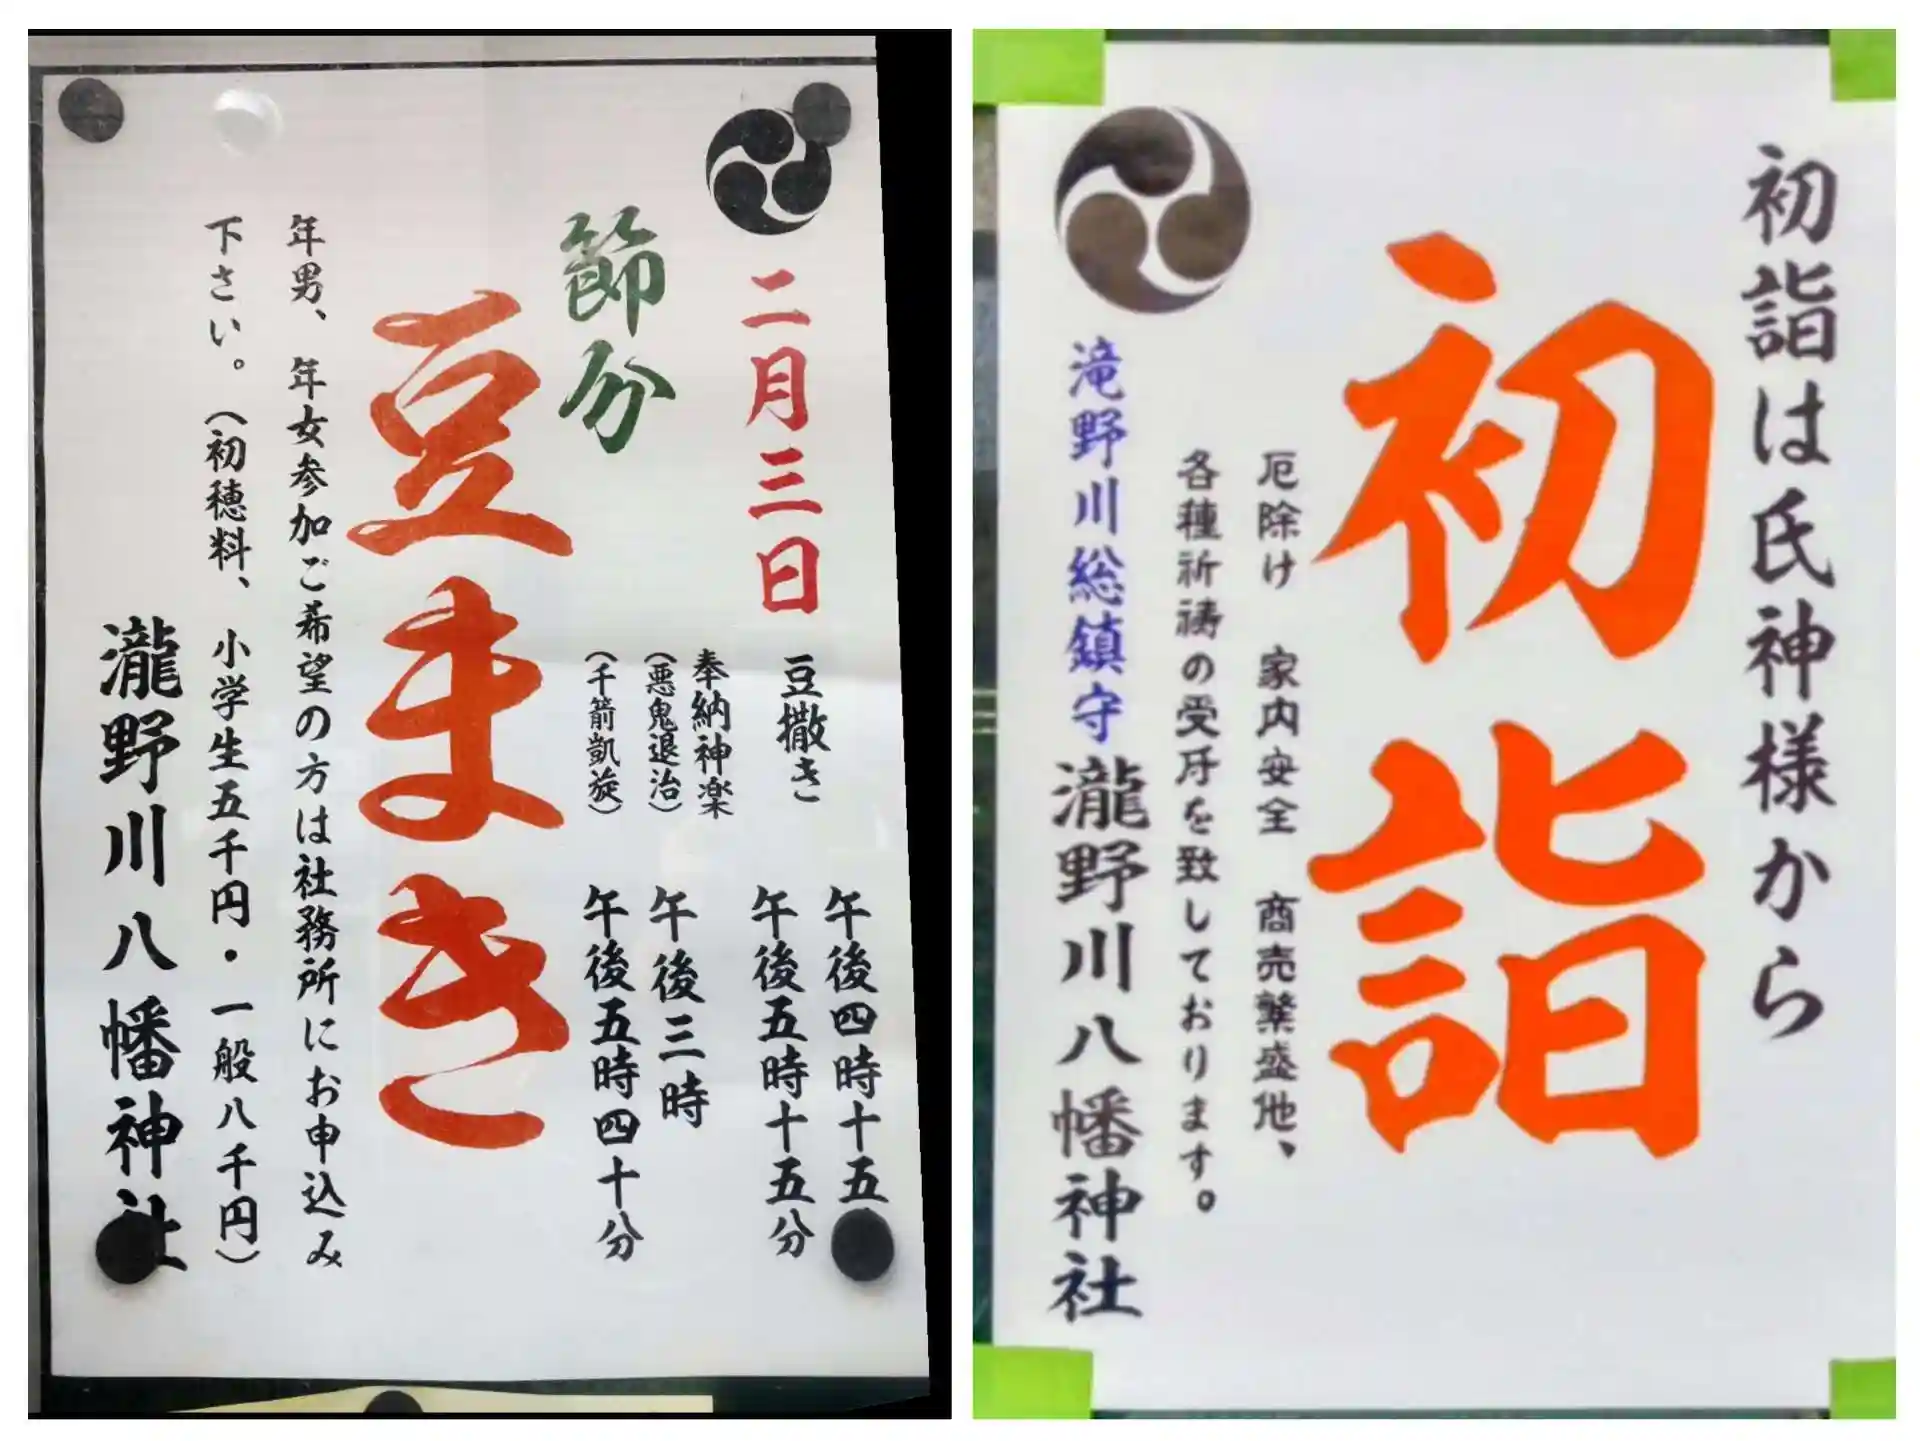 二月三日
豆撒き
午後四時十五
午後五時十五分
奉納神楽
(悪鬼退治)
午後三時
(千箭凱旋)
午後五時四十分
節分
豆まき
年男、年女参加ご希望の方は社務所にお申込み
下さい。(初穂料、小学生五千円・一般八千円)
瀧野川八幡神社
初詣は氏神様から
初詣
厄除け 家内安全 商売繁盛他、
各種祈祷の受付を致しております。
滝野川総鎮守
瀧野川八幡神社